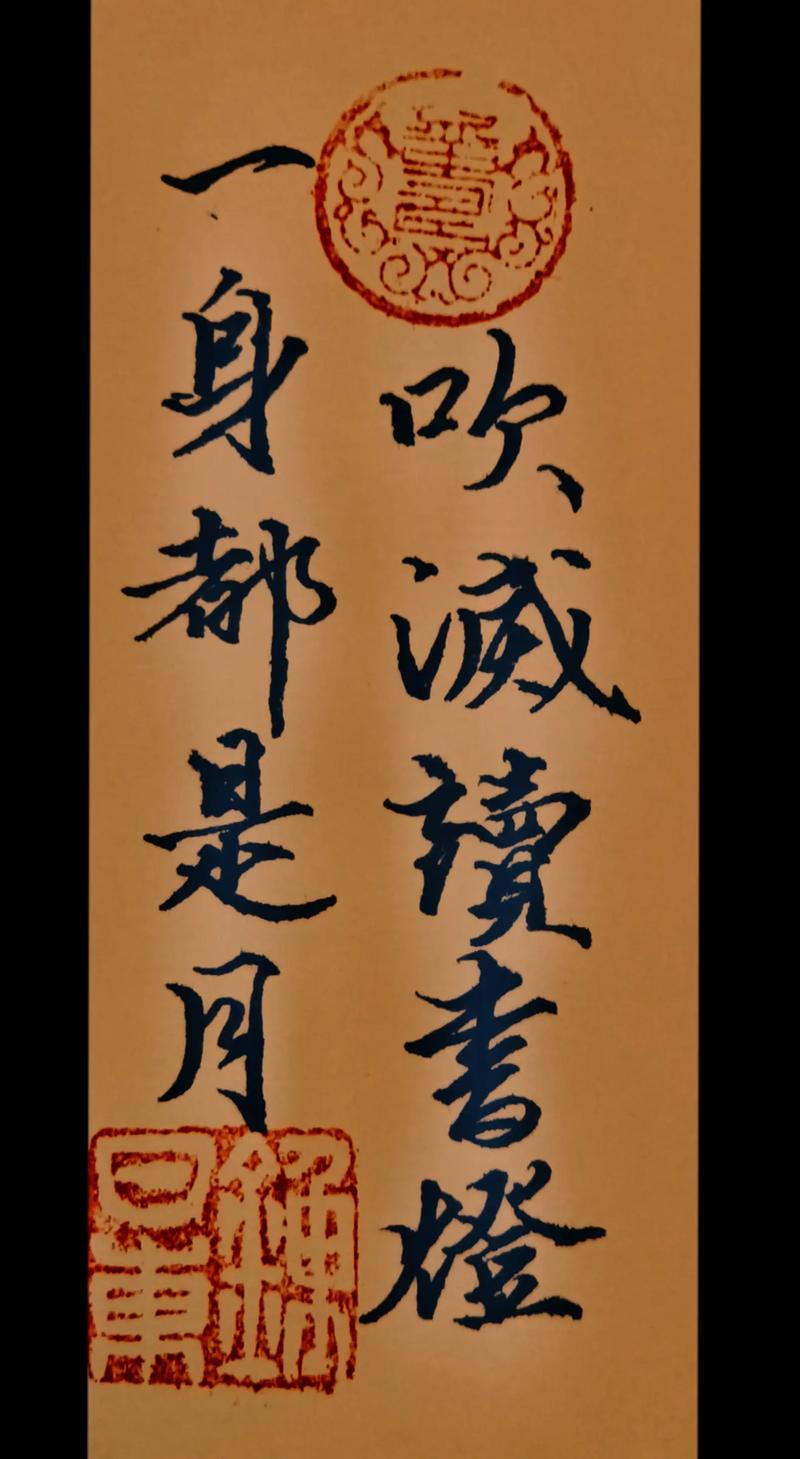 吹滅讀書燈
一身都是月